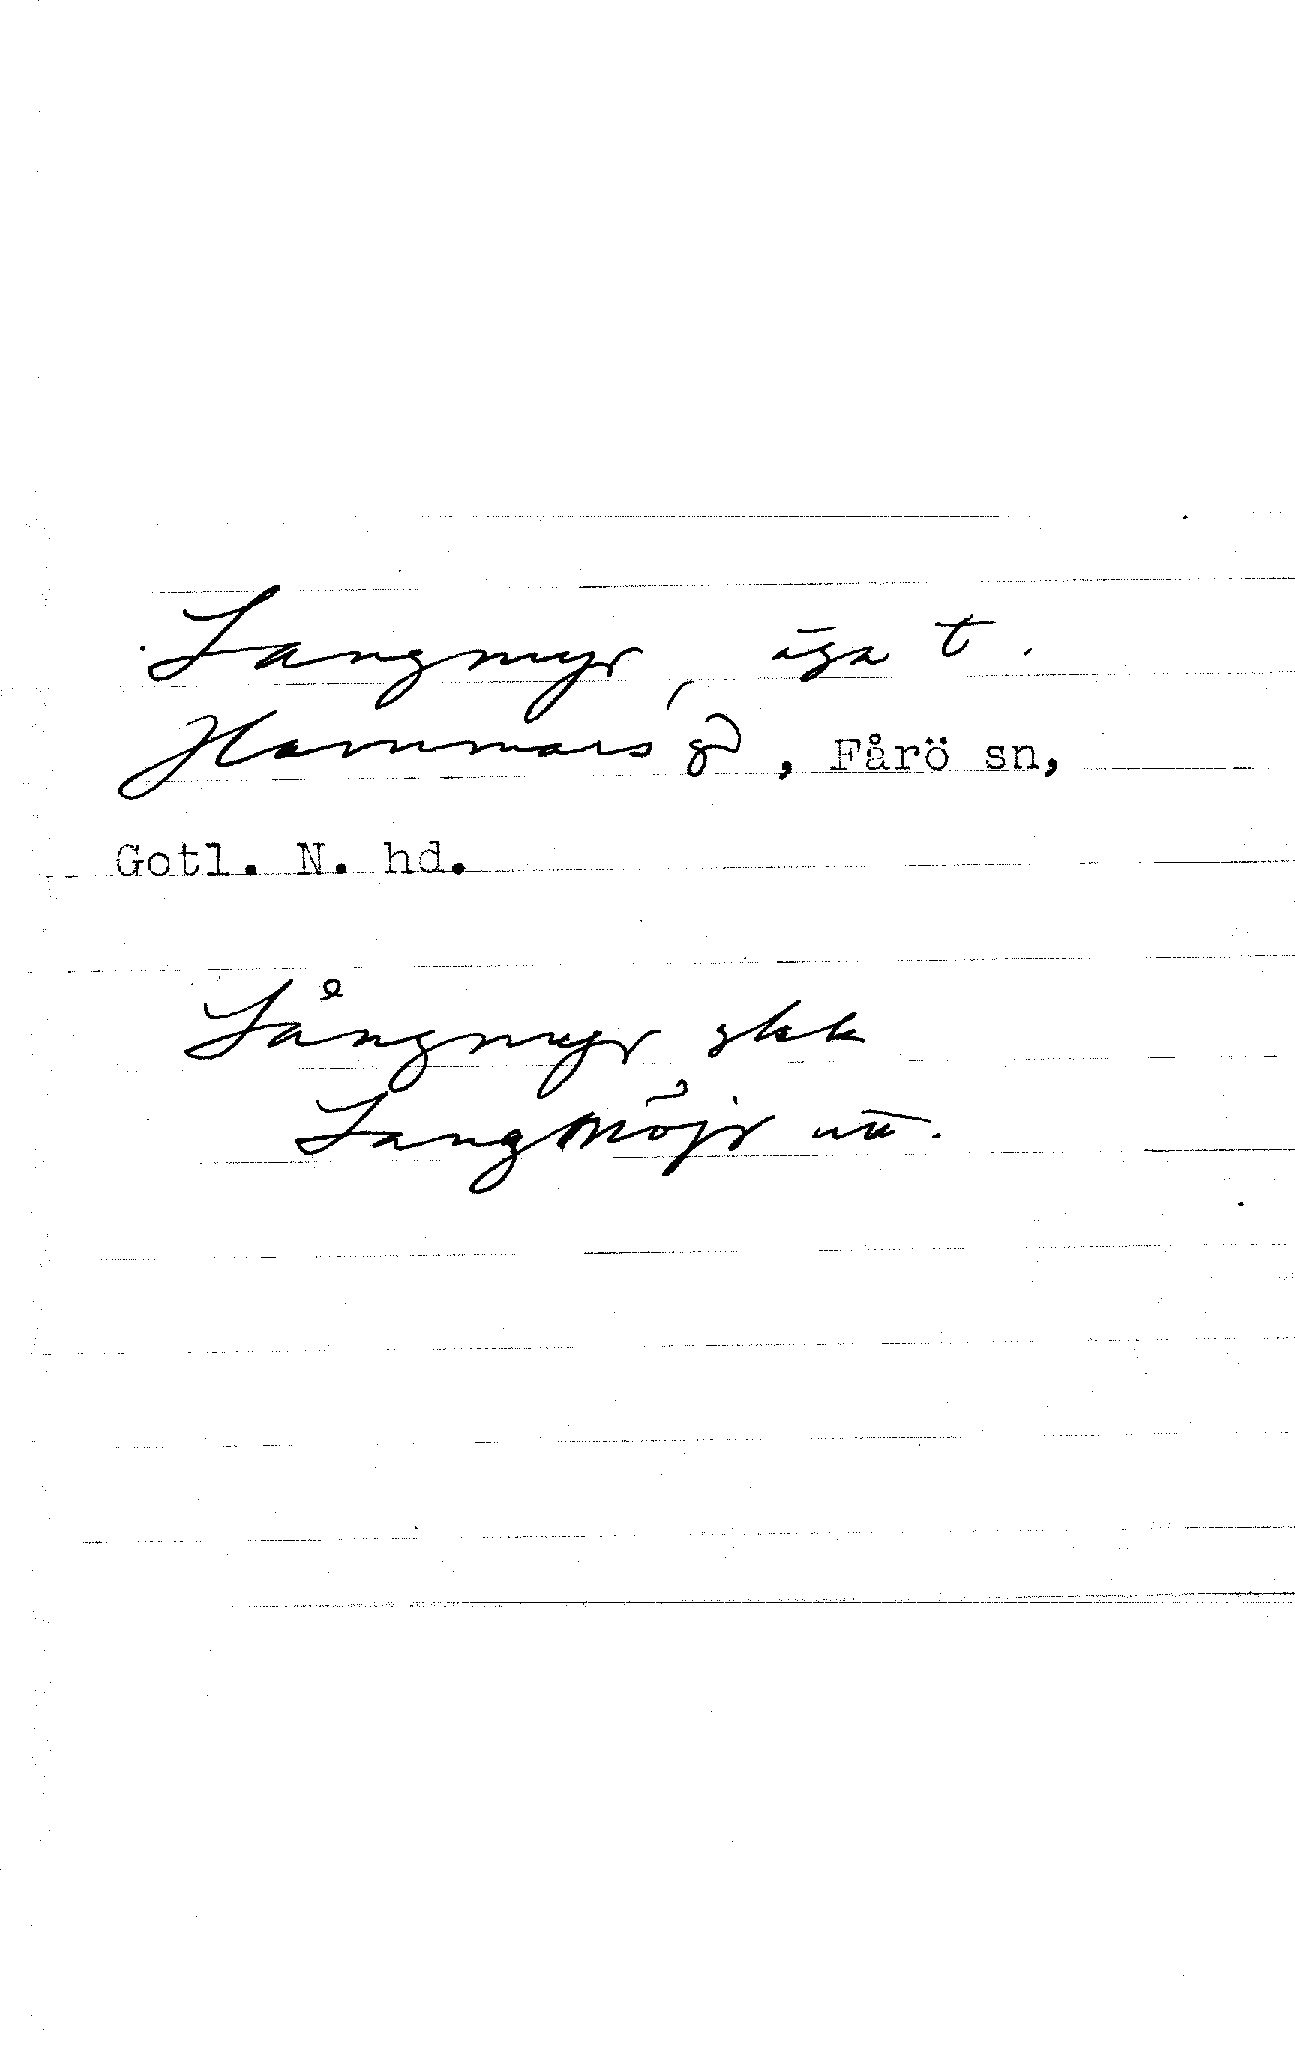 Langmyr, äga t.
Hammars gd, Fårö sn,
Gotl. N. hd.
Långmyr gkk
Langmöjr utt.